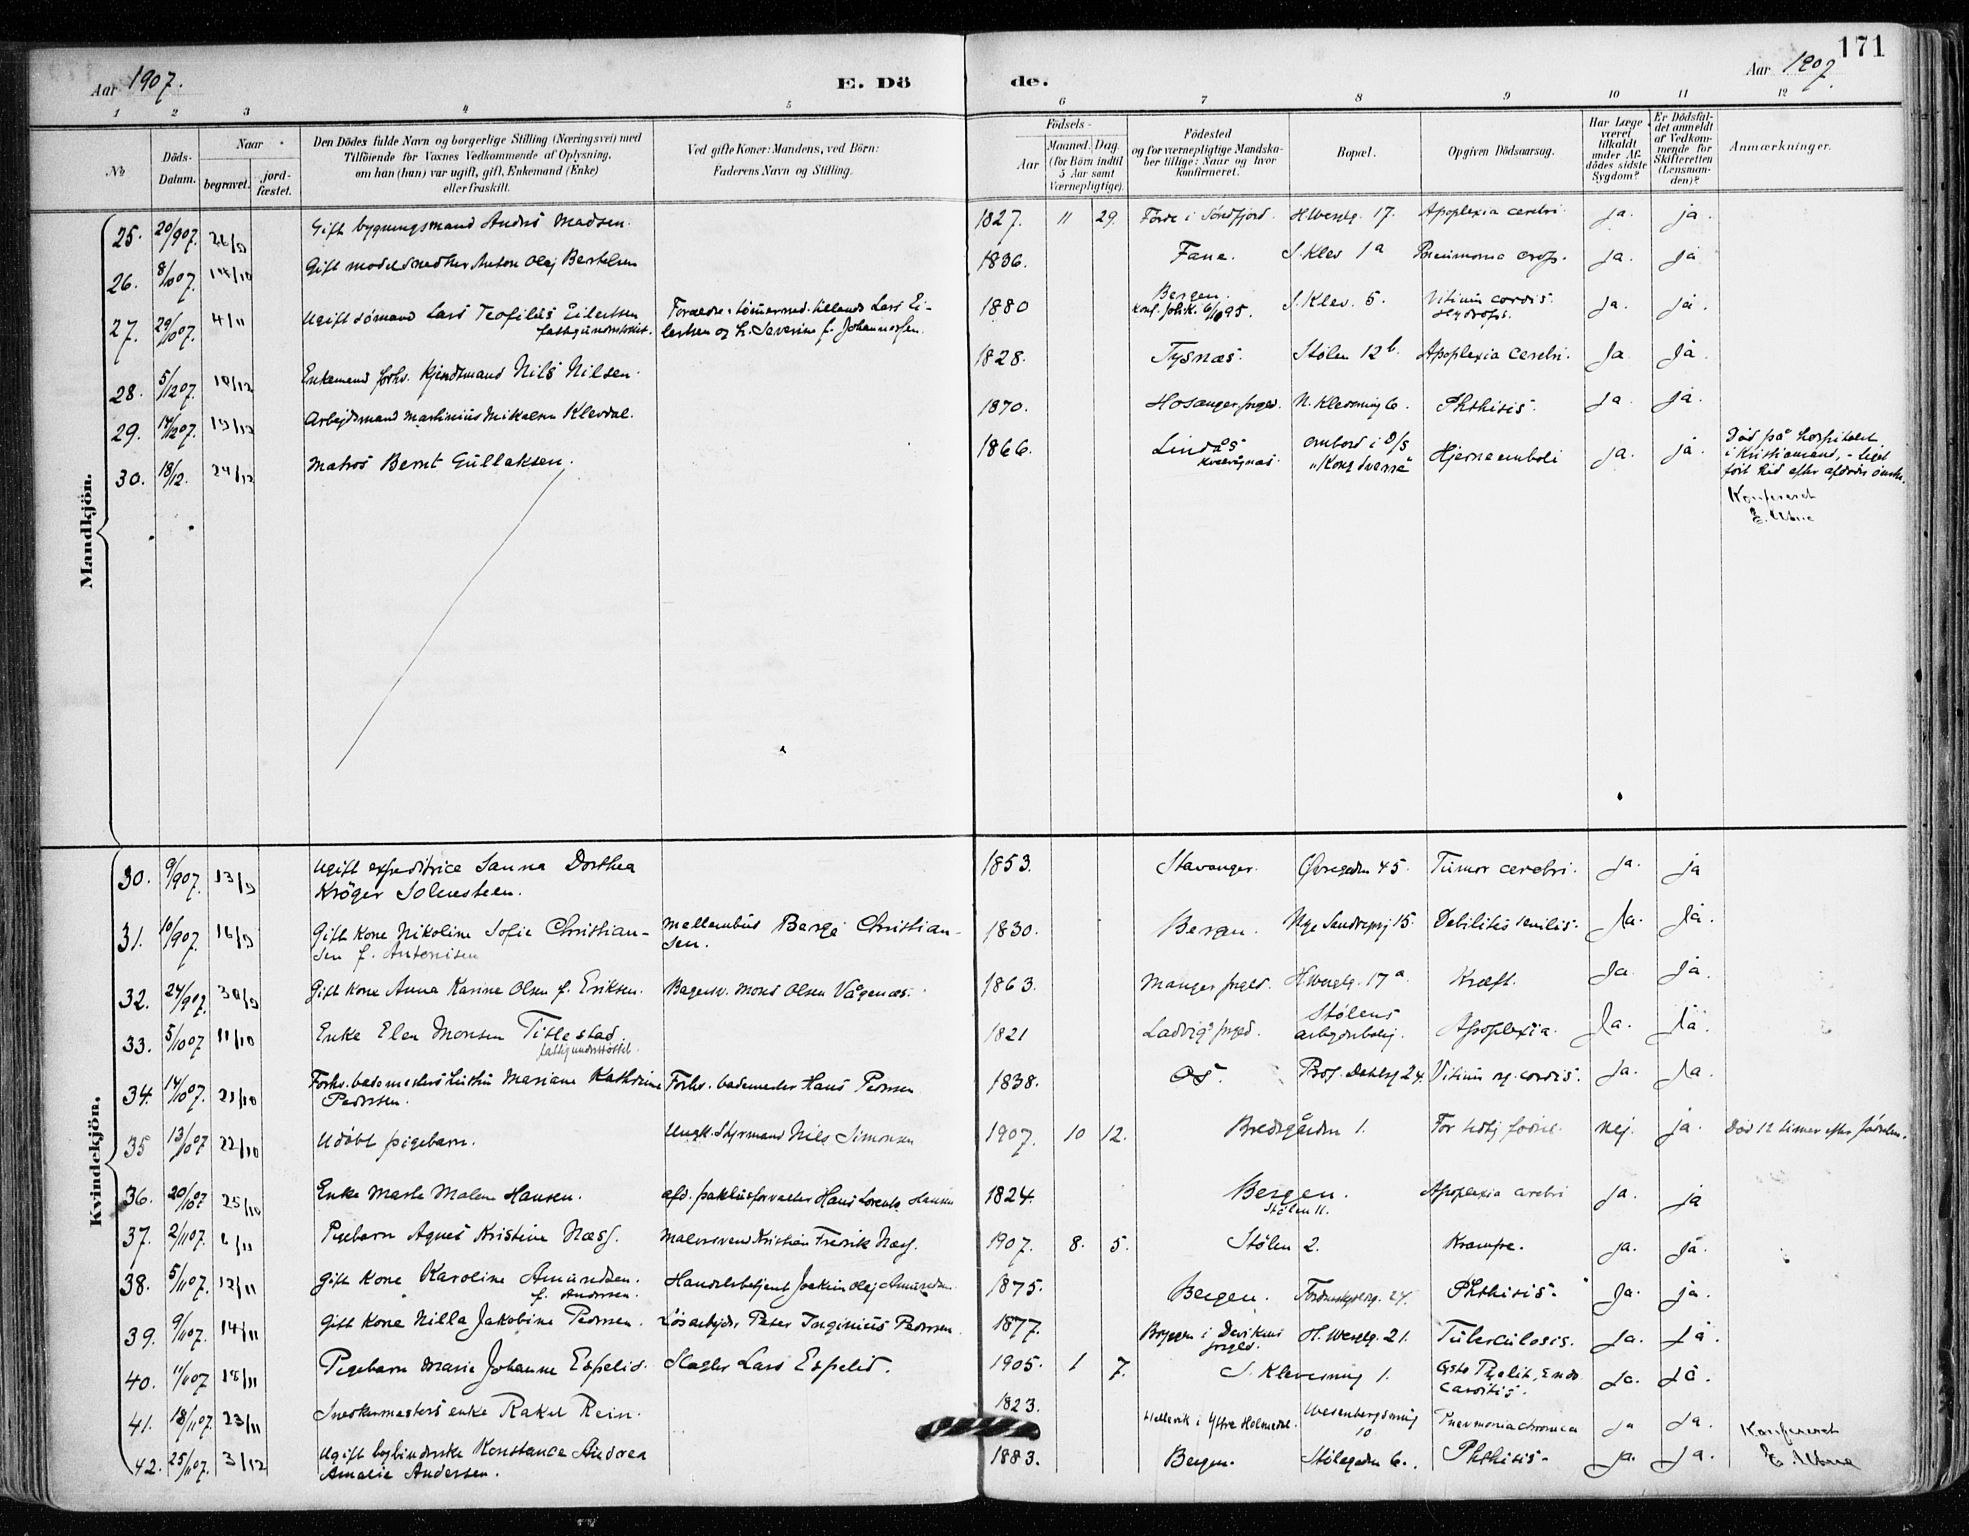 171
Aar 1907.
E. Dö
de.
Aar 1907.
1 2 3 4 5 6 7 8 9 10 11 12
№
Döds-Datum.
Naar
begravet.
jord-fæstet.
Den Dödes fulde Navn og borgerlige Stilling (Næringsvei) med
Tilföiende for Voxnes Vedkommende af Oplysning,
om han (hun) var ugift, gift, Enkemand (Enke)
eller fraskilt.
Ved gifte Koner: Mandens, ved Börn:
Faderens Navn og Stilling.
Födsels-
Aar
Maaned. Dag.
(for Börn indtil
5 Aar samt
Værnepligtige).
Födested
og for værnepligtige Mandska-
ber tillige: Naar og hvor
konfirmeret.
Bopæl.
Opgiven Dödsaarsag.
Har Læge
været
tilkaldt
under Af-
dödes sidste
Sygdom?
Er Dödsfal-
det anmeldt
af Vedkom-
mende for
Skifteretten
(Lensman-
den)?
Anmærkninger.
Mandkjön.
25. 20/9 07. Gift bygningsmand Andres Madsen. 1827. 11 29. Förde i Söndfjord. 17. Apoplexia cerebri. ja. ja.
26. 8/10 07. 14/10 Gift modelsnedker Anton Olaj Bertelsen 1836. Fane. S. Klev 1a Pneumonia crup. ja. ja
27. 29/10 07. 4/11 Ugift sömand Lars Teofilus Eilertsen Lars Ei- 1880 Bergen. S. Klev. 5. Vitium cordis. ja. ja
lertsen og h. Severine f. Johannessen. Hydrops.
28. 5/12 07. 10/12 Enkemand forhv. Nils Nilsen. 1828. Tysnæs. Stölen 12b. Apoplexia cerebri. Ja. Ja.
29. 14/12 07. 19/12 Arbejdsmand Martinius Mikalsen Klevdal. 1870. Hosanger prgld. N. Klevesmug 6. Phthisis. ja. ja.
30. 18/12. 24/12 Matros Bernt Gullaksen. 1866. Lindås ombord i D/S Hjerneemboli ja. ja. Död på hospitalet
"Kong Sverre" i Kristiansund, - liget
fört hid efter afdödes önske.
Konfereret
Kvindekjön.
30. 9/9 07. 13/9 Ugift expeditrice Sanna Dorthea 1853. Stavanger. Övregaden 45. Tumor cerebri. ja. ja
Kröger Solensteen.
31. 10/9 07. 16/9 Gift kone Nikoline Sofie Christian- Berge Christian- 1830. Bergen. Nye Sandvigsvej 15. Debilitas senilis. Ja. Ja.
sen f. Antonisen sen.
32. 24/9 07. 30/9 Gift kone Anna Karine Olsen f. Eriksen. Bagersv. Mons Olsen Vågenæs. 1863. Manger prgld. 17a Kræft. Ja ja.
33. 5/10 07. 11/10 Enke Elen Monsen Titlestad 1821 Ladvigs prgld. Stölens Apoplexia. Ja. Ja
fattigunderstöttet. arbejderbolig.
34. 14/10 07. 21/10 Forhv. bademesters hustru Mariane Kathrine Forhv. bademester Hans Pedersen 1838. Os. Prof. Dahlsg 24. Vitium org. cordis. ja. Ja.
Pedersen.
35 13/10 07 22/10 Udöbt pigebarn. Ungk. Styrmand Nils Simonsen 1907. 10 12. Bredsgården 1. For tidlig födsel. Nej. ja. Död 12 timer efter födslen.
36. 20/10 07 25/10 Enke Marte Malene Hansen. afd. pakhusforvalter Hans Lorents Hansen 1824. Bergen. Apoplexia cerebri ja. ja
Stölen 11.
37. 2/11 07. 6/11 Pigebarn Agnes Kristine Næss. Malersvend Kristian Fredrik Næss. 1907. 8. 5. Stölen 2. Krampe. ja. ja.
38. 5/11 07. 12/11 Gift kone Karoline Amundsen. Handelsbetjent Joakim Olaj Amundsen 1875. Bergen. 24. Phthisis. Ja. ja.
f. Andersen.
39. 9/11 07. 14/11 Gift kone Nilla Jakobine Pedersen. Lösarbejder Peter Inginius Pedersen. 1877. H. Weselg. 21. Tuberculosis. Ja. Ja.
40. 11/11 07 18/11 Pigebarn Marie Johanne Espelid. Slagter Lars Espelid. 1905. 1 7. S. Klevesmug 1. Endo- Ja. Ja.
carditis.
41. 18/11 07. 23/11 Snedkermesters enke Rakel Rein. 1823. i Ytre Holmedal. Wesenbergsmug Pneumonia chronica ja Ja.
10
42. 25/11 07. 3/12 Ugift bogbinderske Konstance Andrea 1883. Bergen. Stölegaden 6. Phthisis. ja. ja. Konfereret
Amalie Andersen.